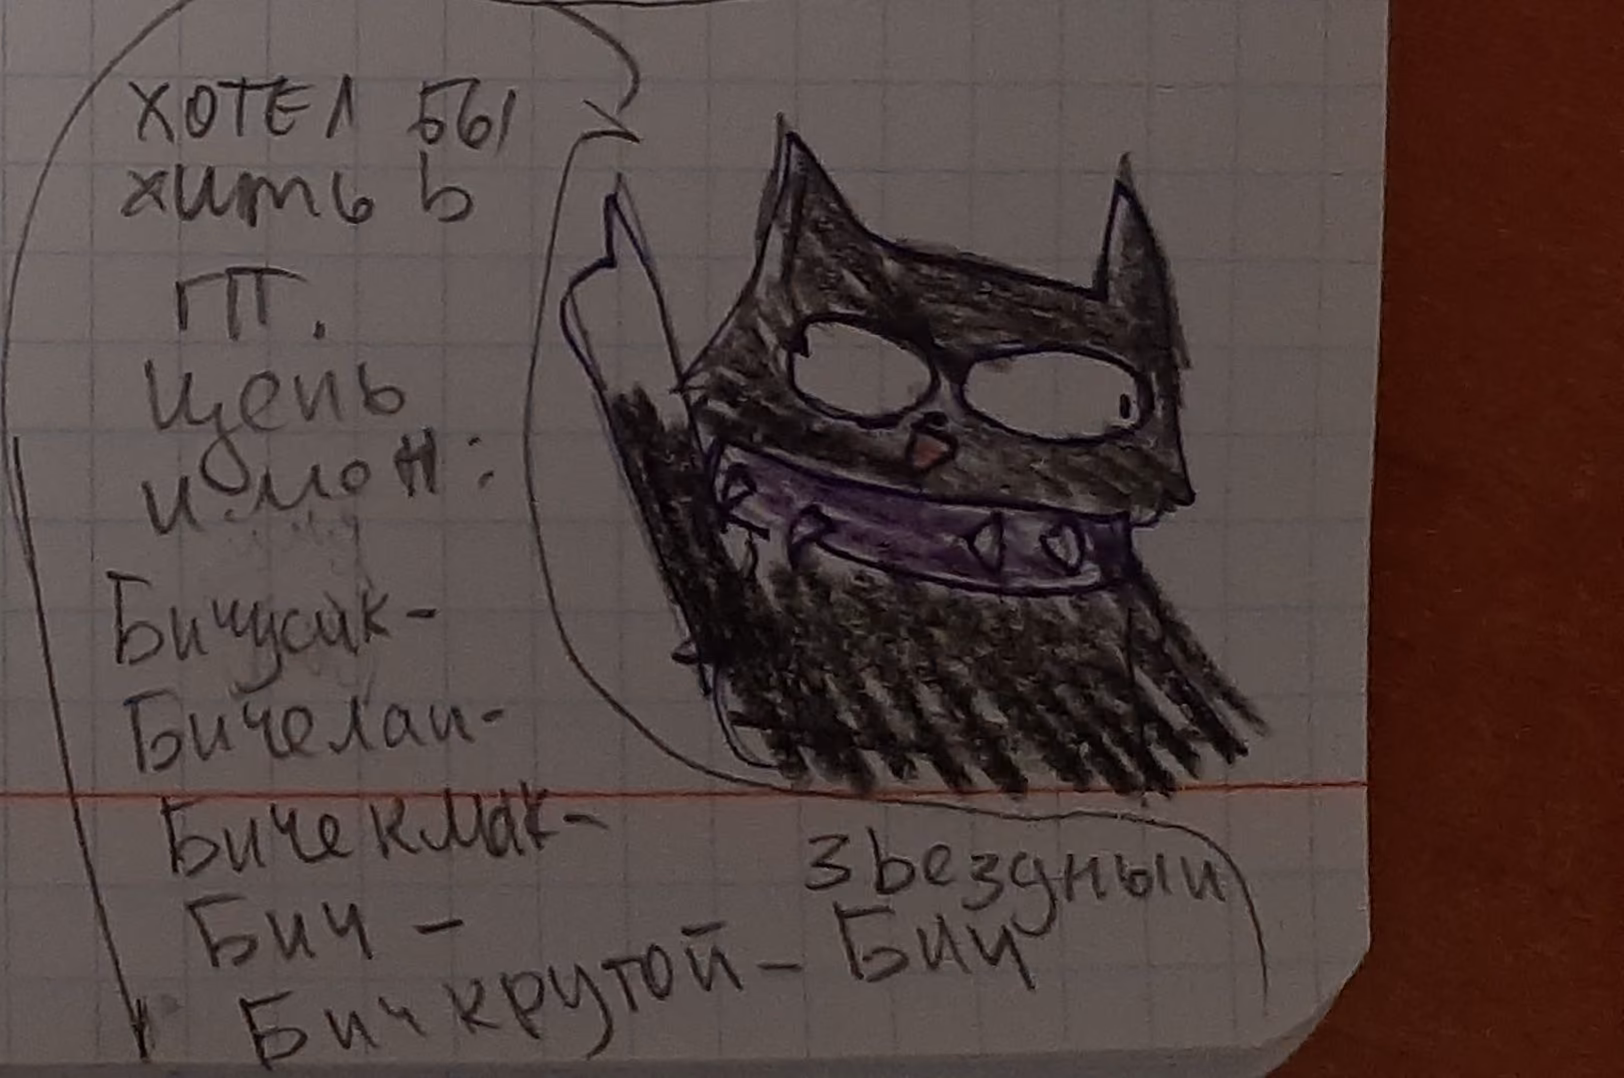 хотел бы
жить в
ГП.
Цепь
имён:
Бичусик-
Бичелап-
Бичекмак-
Бич -
Бич крутой - Звездный
Бич